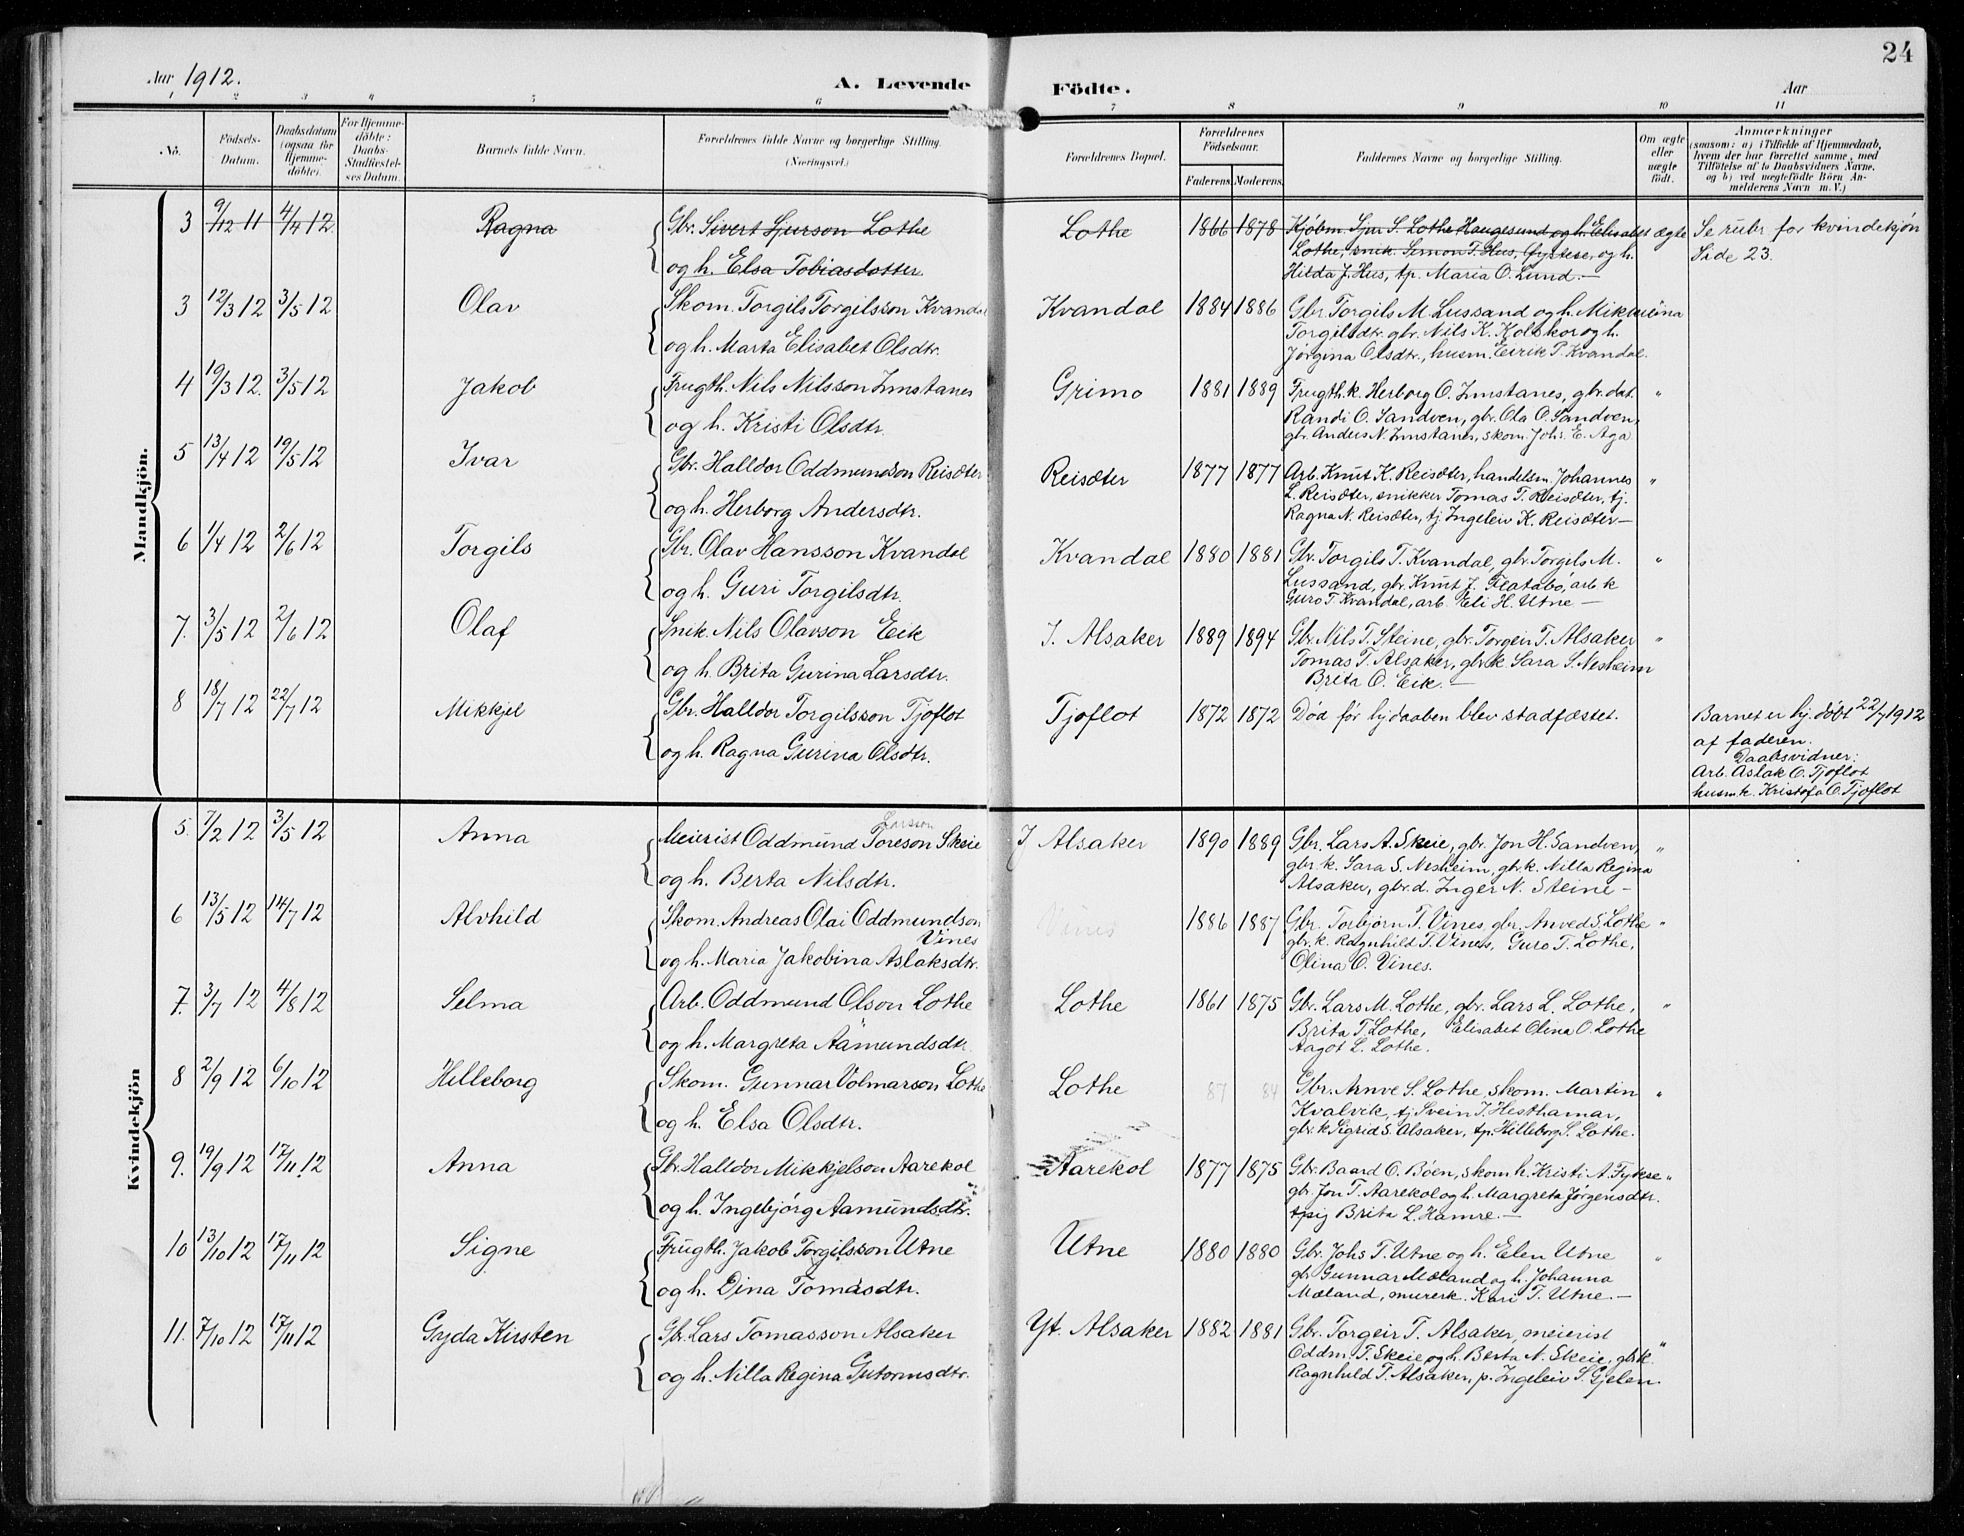 24
Aar 1912. A. Levende Födte. Aar
1 2 3 4 5 6 7 8 9 10 11
No. Födsels-Datum. Daabsdatum (ogsaa for Hjemme-döbte). For Hjemme-döbte: Daabs-Stadfæstel-ses Datum. Barnets fulde Navn. Forældrenes fulde Navne og borgerlige Stilling. (Næringsvei.) Forældrenes Bopæl. Forældrenes Födselsaar. Faderens. Moderens. Faddernes Navne og borgerlige Stilling. Om ægte eller uægte födt. Anmærkninger (saasom: a) i Tilfælde af Hjemmedaab, hvem der har forrettet samme, med Tilföielse af to Daabsvidners Navne, og b) ved uægtefödte Börn An-melderens Navn m. V.)
Mandkjön.
3 9/12 11 4/4 12 Ragna Gbr. Sivert Sjurson Lothe Lothe 1866 1878 Kjøbm. Sjur S. Lothe Haugesund og h. Elisabet ægte Se rubr for kvindekjøn
Lothe, snik. Simon T. Hus, Fyksese, og h. Side 23.
og h. Elsa Tobiasdotter. Hilda J. Hus, tp. Maria O. Lund. —
3 12/3 12 3/5 12 Olav Skom. Torgils Torgilsson Kvandal Kvandal 1884 1886 Gbr Torgils M Lussand og h.
Torgilsdtr. gbr. Nils K. Kolskor og h.
og h. Marta Elisabet Olsdtr. Jørgina Olsdtr., husm. Eirik P. Kvandal.
4 19/3 12. 3/5 12 Jakob Frugth. Nils Nilsson Instanes Grimo 1881 1889 Frugth.k. Herborg O. Instanes, gbr.dat. "
Randi O. Sandven, gbr. Ola O. Sandven,
og h. Kristi Olsdtr. gbr. Anders N. Instanes, skom. Johs. E. Aga
5 13/4 12 19/5 12 Ivar Gbr. Halldor Oddmundson Reisæter Reisæter 1877 1877 Arb. Knut K. Reisæter, handelsm. Johannes "
L. Reisæter, snikker Tomas T. Reisæter, tj.
og h. Herborg Andersdtr. Ragna N. Reisæter, tj. Ingeleiv K. Reisæter —
6 1/4 12 2/6 12 Torgils Gbr. Olav Hansson Kvandal Kvandal 1880 1881 Gbr. Torgils T. Kvandal, gbr. Torgils M. "
Lussand, gbr. Knut J. Flatabø, arb.k
og h. Guri Torgilsdtr. Guro T. Kvandal, arb. Eli H. Utne —
7. 3/5 12 2/6 12 Olaf Snik. Nils Olavson Eik I. Alsaker 1889 1894 Gbr. Nils T. Steine, gbr. Torgeir T. Alsaker "
Tomas T. Alsaker, gbr.k Sara S. Nesheim
og h. Brita Gurina Larsdtr. Brita O. Eik. —
8 18/7 12 22/7 12 Mikkjel Gbr. Halldor Torgilsson Tjoflot Tjoflot 1872 1872 Død før hj.daaben blev stadfæstet. Barnet er hj. døbt 22/7 1912
af faderen.
og h. Ragna Gurina Olsdtr. Daabsvidner:
Arb. Aslak O. Tjoflot
husm.k. Kristofa O. Tjoflot
Kvindekjön
5. 7/2 12 3/5 12 Anna Meierist Oddmund Toreson Skeie Larsson I Alsaker 1890 1889 Gbr. Lars A. Skeie, gbr. Jon H. Sandven, "
gbr.k. Sara S. Nesheim, gbr.k. Nilla Regina
og h. Berta Nilsdtr. Alsaker, gbr.d. Inger N. Steine —
6 13/5 12 14/7 12 Alvhild Skom. Andreas Olai Oddmundson Vines Vines 1886 1887 Gbr. Torbjørn T. Vines, gbr. Anved S. Lothe "
gbr.k. Ragnhild T. Vines, Guro T. Lothe,
og h. Maria Jakobina Aslaksdtr. Olina O. Vines.
7. 3/7 12 4/8 12 Selma Arb. Oddmund Olson Lothe Lothe 1861 1875 Gbr. Lars M. Lothe, gbr. Lars L. Lothe, "
Brita T. Lothe, Elisabet Olina O. Lothe
og h. Margreta Aamundsdtr. Aagot L. Lothe.
8 2/9 12 6/10 12 Hilleborg Skom. Gunnar Volmarson Lothe Lothe 87 84 Gbr. Arnve S. Lothe, skom. Martin "
Kvalvik, tj. Svein J. Hesthamar,
og h. Elsa Olsdtr. gbr.k Sigrid S. Alsaker, tp. Hilleborg S. Lothe.
9. 19/9 12 17/11 12 Anna Gbr. Halldor Mikkjelson Aarekol Aarekol 1877 1875 Gbr. Baard O. Bøen, skom.h. Kristi A. Fykse "
gbr. Jon T. Aarekol og h. Margreta Jørgensdtr.
og h. Ingebjørg Aamundsdtr. tpig Brita L. Hamre. —
10 13/10 12 17/11 12 Signe Frugth. Jakob Torgilsson Utne Utne 1880 1880 Gbr. Johs T. Utne og h. Elen Utne "
gbr Gunnar Mæland og h. Johanna
og h. Dina Tomasdtr. Mæland, murerk. Kari T. Utne. —
11. 7/10 12 17/11 12 Gyda Kirsten Gbr. Lars Tomasson Alsaker Yt. Alsaker 1882 1881 Gbr. Torgeir T. Alsaker, meierist "
Oddm. T. Skeie og h. Berta N. Skeie, gbr.k.
og h. Nilla Regina Gutormsdtr. Ragnhild T. Alsaker, p. Ingeleiv S. Gjelen.